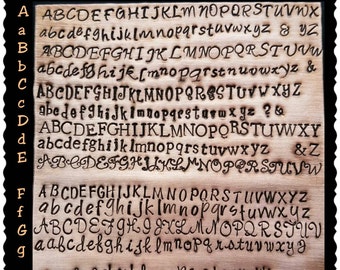 A
a
B
b
C
c
D
d
E
F
f
G
g
ABCDEFGHIJKLMNOPQRSTUVWXYZ
abcdefghijklmnopqrstuvwxyz & yz
ABCDEFGHIJKLMNOPQRSTUVWXYZ
abcdefghijklmnopqrstuvwxyz &
ABCDEFGHIJKLMNOPQRSTUVWXYZ
abcdefghijklmnopqrstuvwxyz ? &
ABCDEFGHIJKLMNOPQRSTUVWXY
abcdefghijklmnopqrstuvwxyz &Z
ABCDEFGHIJKLMNOPQRSTUVW
ABCDEFGHIJKLMNOPQRSTUVWXYZ
abcdefghijklmnopqrstuvwxyz
ABCDEFGHIJKLMNOPQRSTUVW
abcdefghijklmnopqrstuvwxyz